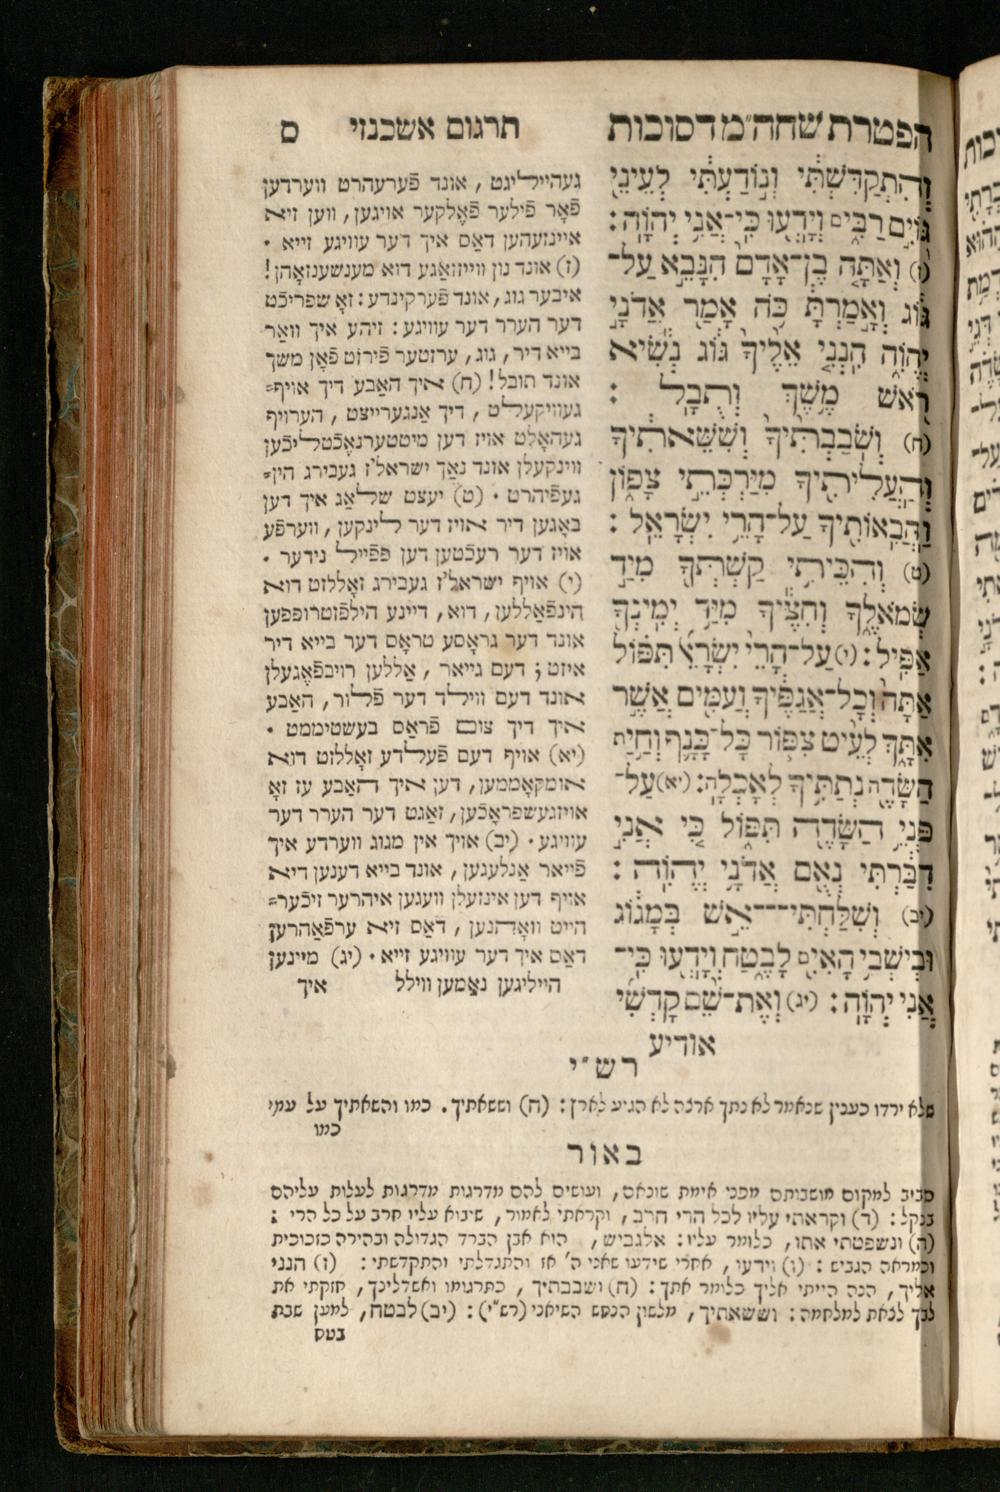 הפטרת שחה״מ דסוכות
וְהִתְקַדִּשְׁתִּי וְנוֹדַעְתִּי לְעֵינֵי
גּוֹיִם רַבִּים וְיָדְעוּ כִּי־אֲנִי יְהוָֹה :
(ז) וְאַתָּה בֶן־אָדָם הִנָּבֵא עַל־
גּוֹג וְאָמַרְתָּ כֹּה אָמַר אֲדֹנָי
יֱהוִֹה הִנְנִי אֵלֶיךָ גּוֹג נְשִׂיא
רֹאשׁ מֶשֶׁךְ וְתֻבָל :
(ח) וְשֹׁבַבְתִּיךָ וְשִׁשֵּׁאתִיךָ
וְהַעֲלִיתִיךָ מִיַּרְכְּתֵי צָפוֹן
וַהֲבִאוֹתִיךָ עַל־הָרֵי יִשְׂרָאֵל :
(ט) וְהִכֵּיתִי קַשְׁתְּךָ מִיַּד
שְׂמֹאולֶךָ וְחִצֶּיךָ מִיַּד יְמִינְךָ
אַפִּיל : (י) עַל־הָרֵי יִשְׂרָאֵל תִּפּוֹל
אַתָּה וְכָל־אֲגַפֶּיךָ וְעַמִּים אֲשֶׁר
אִתָּךְ לְעֵיט צִפּוֹר כָּל־כָּנָף וְחַיַּת
הַשָּׂדֶה נְתַתִּיךָ לְאָכְלָה : (יא) עַל־
פְּנֵי הַשָּׂדֶה תִּפּוֹל כִּי אֲנִי
דִבַּרְתִּי נְאֻם אֲדֹנָי יֱהוִֹה :
(יב) וְשִׁלַּחְתִּי־אֵשׁ בְּמָגוֹג
וּבְיֹשְׁבֵי הָאִיִּים לָבֶטַח וְיָדְעוּ כִּי־
אֲנִי יְהוָֹה : (יג) וְאֶת־שֵׁם קָדְשִׁי
אודיע
תרגום אשכנזי ס
געהייליגט , אונד פֿערעהרט ווערדען
פֿאָר פֿילער פֿאָלקער אויגען , ווען זיא
איינזעהען דאס איך דער עוויגע זייא .
(ז) אונד נון ווייזזאַגע דוא מענשענזאָהן !
איבער גוג , אונד פֿערקינדע : זאָ שפריכֿט
דער הערר דער עוויגע : זיהע איך וואַר
בייא דיר , גוג , ערזטער פֿירזט פֿאָן משך
אונד תובל ! (ח) איך האַבע דיך אויף=
געוויקעללט , דיך אַנגערייצט , הערויף
געהאָלט אויז דען מיטטערנאַכֿטליכֿען
ווינקעלן אונד נאַך ישראל׳ז געבירג הין=
געפֿיהרט . (ט) יעצט שלאַג איך דען
באָגען דיר אויז דער לינקען , ווערפֿע
אויז דער רעכֿטען דען פפֿייל נידער .
(י) אויף ישראל׳ז געבירג זאָללזט דוא
הינפֿאַללען , דוא , דיינע הילפֿזטרופפען
אונד דער גראָסע טראָס דער בייא דיר
איזט ; דעם גייאר , אַללען רויבפֿאָגעלן
אונד דעם ווילד דער פֿלור , האַבע
איך דיך צום פֿראַס בעשטיממט .
(יא) אויף דעם פֿעלדע זאָללזט דוא
אומקאָממען , דען איך האַבע עז זאָ
אויזגעשפראָכֿען , זאַגט דער הערר דער
עוויגע . (יב) אויך אין מגוג ווערדע איך
פֿייאר אַנלעגען , אונד בייא דענען דיא
אויף דען אינזעלן וועגען איהרער זיכֿער=
הייט וואָהנען , דאַס זיא ערפֿאַהרען
דאַס איך דער עוויגע זייא . (יג) מיינען
הייליגען נאַמען ווילל איך
רש״י
שלא ירדו כענין שנאמר לא נתך ארצה לא הגיע לארץ : (ח) וששאתיך . כמו והשאתיך על עמי
כמו
באור
סביב למקום מושבותם מפני אימת שונאם , ועושים להם מדרגות מדרגות לעלות עליהם
בנקל : (ד) וקראתי עליו לכל הרי חרב , וקראתי לאמור , שיבוא עליו חרב על כל הרי :
(ה) ונשפטתי אתו , כלומר עליו : אלגביש , הוא אבן הברד הגדולה ובהירה כזכוכית
וכמראה הגביש : (ו) וידעו , אחרי שידעו שאני ה׳ אז והתגדלתי והתקדשתי : (ז) הנני
אליך , הנה הייתי אליך כלומר אתך : (ח) ושבבתיך , כתרגומו ואשדלינך , חזקתי את
לבך לצאת למלחמה : וששאתיך , מלשון הנחש השיאני (רש״י) : (יב) לבטח , למען שבת
בטח